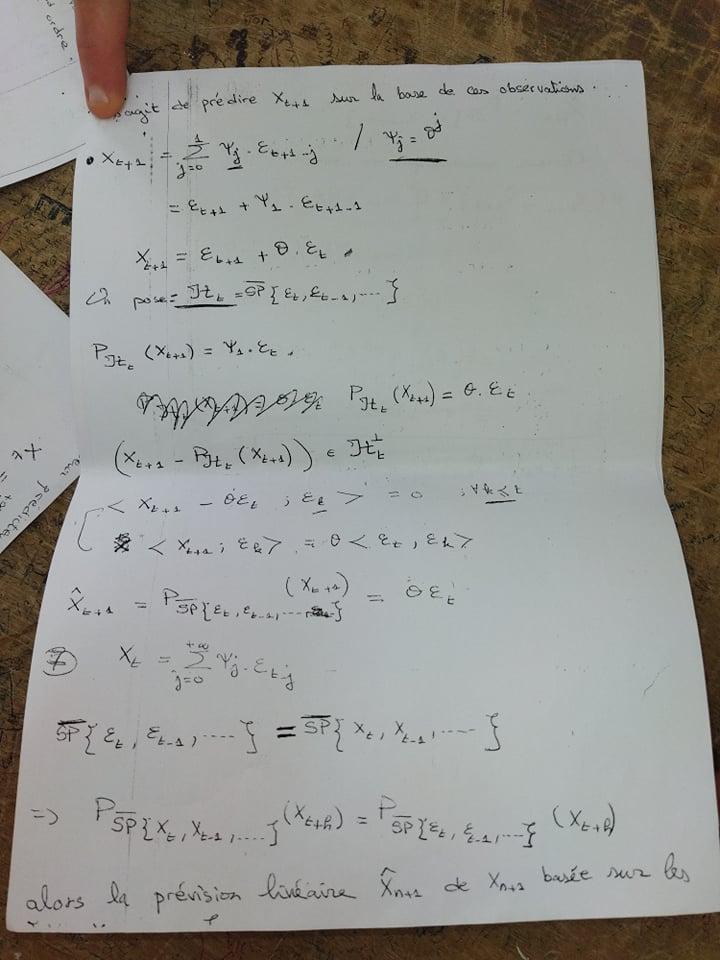 s'agit de prédire X_{t+1} sur la base de ces observations.
• X_{t+1} = \sum_{j=0}^{1} Ψ_j . ε_{t+1-j} / Ψ_j = θ^j
= ε_{t+1} + Ψ_1 . ε_{t+1-1}
X_{t+1} = ε_{t+1} + θ . ε_t
On pose = H_t = \overline{SP}{ε_t, ε_{t-1}, ....}
P_{H_t} (X_{t+1}) = Ψ_1 . ε_t .
P_{H_t} (X_{t+1}) = θ . ε_t
(X_{t+1} - P_{H_t} (X_{t+1})) ∈ H_t^⊥
< X_{t+1} - θε_t ; ε_k > = 0 ; ∀k ≤ t
< X_{t+1} ; ε_k > = θ < ε_t , ε_k >
\hat{X}_{t+1} = P_{\overline{SP}{ε_t, ε_{t-1}, ....}} (X_{t+1}) = θ ε_t
X_t = \sum_{j=0}^{+∞} Ψ_j . ε_{t-j}
\overline{SP}{ε_t, ε_{t-1}, ....} = \overline{SP}{X_t, X_{t-1}, ....}
=> P_{\overline{SP}{X_t, X_{t-1}, ....}} (X_{t+h}) = P_{\overline{SP}{ε_t, ε_{t-1}, ....}} (X_{t+h})
alors la prévision linéaire \hat{X}_{n+1} de X_{n+1} basée sur les
ordre.